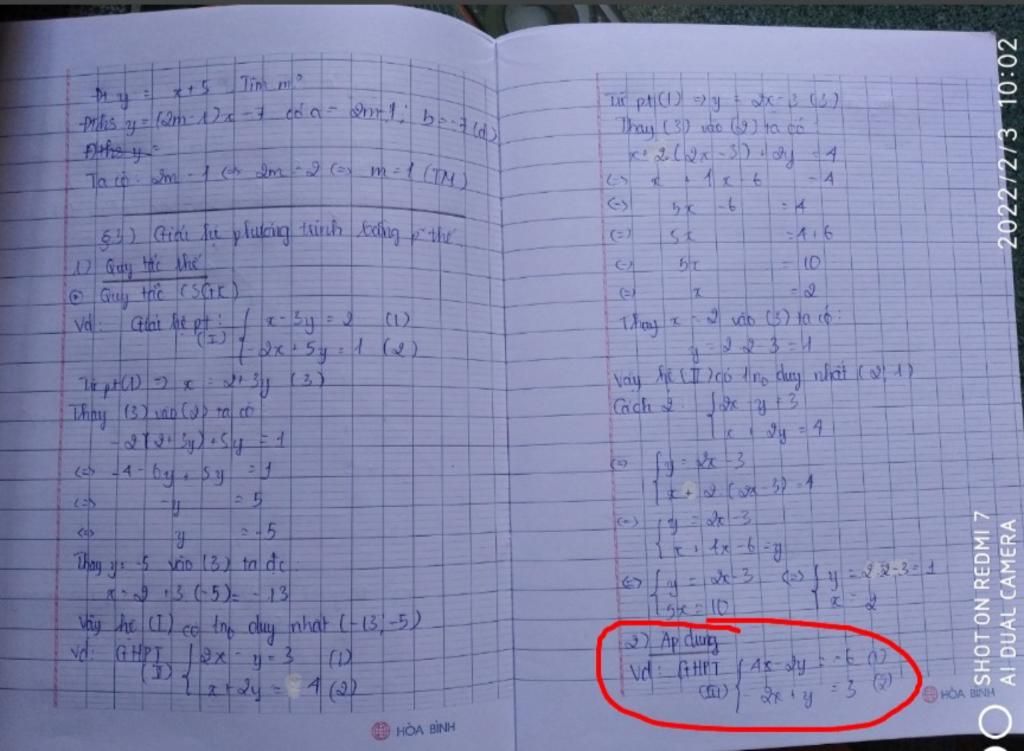 y = x + 5 Tìm m
y = (2m-1)x - 7 có a = 2m-1; b = -7 (d)
Ta có: 2m - 1 <=> 2m = 2 <=> m = 1 (TM)
§3) Giải hệ phương trình bằng p² thế
1) Quy tắc thế
Quy tắc (SGK)
Vd: Giải hệ pt: x - 3y = 2 (1)
(I) -2x + 5y = 1 (2)
Từ pt(1) => x = 2+3y (3)
Thay (3) vào (2) ta có
-2(2+3y)+5y = 1
<=> -4 - 6y + 5y = 1
<=> -y = 5
<=> y = -5
Thay y = -5 vào (3) ta đc
x = 2 + 3(-5) = -13
Vậy hệ (I) có 1no duy nhất (-13; -5)
Vd: GHPT 2x - y = 3 (1)
(II) x + 2y = 4 (2)
HÒA BÌNH
Từ pt(1) => y = 2x - 3 (3)
Thay (3) vào (2) ta có
x + 2(2x-3) + 2y = 4
<=> x + 4x - 6 = 4
<=> 5x - 6 = 4
<=> 5x = 4+6
<=> 5x = 10
<=> x = 2
Thay x = 2 vào (3) ta có:
y = 2.2-3 = 1
Vậy hệ (II) có 1no duy nhất (2; 1)
Cách 2 2x y + 3
x + 2y = 4
<=> y = 2x - 3
x + 2.(2x-3) = 4
<=> y = 2x - 3
x + 4x - 6 = y
<=> y = 2x-3 <=> y = 2.2-3 = 1
5x = 10 x = 2
2) Áp dụng
Vd: GHPT 4x - 2y = -6 (1)
(III) -2x + y = 3 (2)
HÒA BÌNH
2022/2/3 10:02
SHOT ON REDMI 7
AI DUAL CAMERA